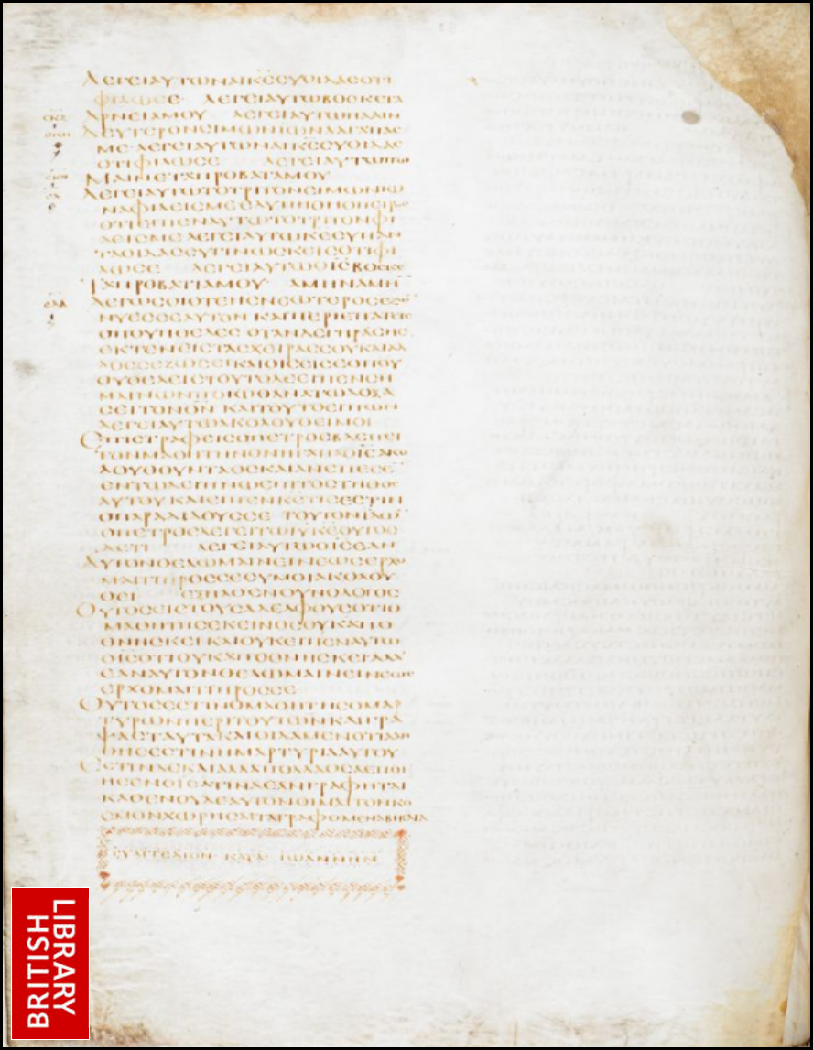 ΛΕΓΕΙΑΥΤΩΝΑΙΚΕϹΥΟΙΔΑϹΟΤΙ
ΦΙΛΩϹΕ· ΛΕΓΕΙΑΥΤΩΒΟϹΚΕΤΑ
ΑΡΝΕΙΑΜΟΥ ΛΕΓΕΙΑΥΤΩΠΑΛΙΝ
ΔΕΥΤΕΡΟΝϹΙΜΩΝΙΩΝΑΑΓΑΠΑϹ
ΜΕ·ΛΕΓΕΙΑΥΤΩΝΑΙΚΕϹΥΟΙΔΑϹ
ΟΤΙΦΙΛΩϹΕ ΛΕΓΕΙΑΥΤΩΠΟΙ
ΜΑΙΝΕΤΑΠΡΟΒΑΤΑΜΟΥ
ΛΕΓΕΙΑΥΤΩΤΟΤΡΙΤΟΝϹΙΜΩΝΙΩ
ΝΑΦΙΛΕΙϹΜΕΕΛΥΠΗΘΗΟΠΕΤΡΟϹ
ΟΤΙΕΙΠΕΝΑΥΤΩΤΟΤΡΙΤΟΝΦΙ
ΛΕΙϹΜΕ ΛΕΓΕΙΑΥΤΩΚΕϹΥΠΑΝ
ΤΑΟΙΔΑϹϹΥΓΙΝΩϹΚΕΙϹΟΤΙΦΙ
ΛΩϹΕ ΛΕΓΕΙΑΥΤΩΟΙϹΒΟϹΚΕ
ΤΑΠΡΟΒΑΤΙΑΜΟΥ ΑΜΗΝΑΜΗ
ΛΕΓΩϹΟΙΟΤΕΗϹΝΕΩΤΕΡΟϹΕΖΩ
ΝΥΕϹϹΕΑΥΤΟΝ ΚΑΙΠΕΡΙΕΠΑΤΕΙϹ
ΟΠΟΥΗΘΕΛΕϹ ΟΤΑΝΔΕΓΗΡΑϹΗϹ
ΕΚΤΕΝΕΙϹΤΑϹΧΕΙΡΑϹϹΟΥΚΑΙΑΛ
ΛΟϹϹΕΖΩϹΕΙΚΑΙΟΙϹΕΙϹΕΟΠΟΥ
ΟΥΘΕΛΕΙϹΤΟΥΤΟΔΕΕΙΠΕΝϹΗ
ΜΑΙΝΩΝΠΟΙΩΘΑΝΑΤΩΔΟΞΑ
ϹΕΙΤΟΝΘΝ ΚΑΙΤΟΥΤΟΕΙΠΩΝ
ΛΕΓΕΙΑΥΤΩΑΚΟΛΟΥΘΕΙΜΟΙ
ΕΠΙϹΤΡΑΦΕΙϹΟΠΕΤΡΟϹΒΛΕΠΕΙ
ΤΟΝΜΑΘΗΤΗΝΟΝΗΓΑΠΑΟΙϹΑΚΟ
ΛΟΥΘΟΥΝΤΑΟϹΚΑΙΑΝΕΠΕϹΕ
ΕΝΤΩΔΕΙΠΝΩΕΠΙΤΟϹΤΗΘΟϹ
ΑΥΤΟΥΚΑΙΕΙΠΕΝΚΕΤΙϹΕϹΤΙΝ
ΟΠΑΡΑΔΙΔΟΥϹϹΕ ΤΟΥΤΟΝΙΔΩΝ
ΟΠΕΤΡΟϹΛΕΓΕΙΤΩΙΥΚΕΟΥΤΟϹ
ΔΕΤΙ ΛΕΓΕΙΑΥΤΩΟΙϹΕΑΝ
ΑΥΤΟΝΘΕΛΩΜΕΝΕΙΝΕΩϹΕΡΧΟ
ΜΑΙΤΙΠΡΟϹϹΕϹΥΜΟΙΑΚΟΛΟΥ
ΘΕΙ ΕΞΗΛΘΕΝΟΥΝΟΛΟΓΟϹ
ΟΥΤΟϹΕΙϹΤΟΥϹΑΔΕΛΦΟΥϹΟΤΙΟ
ΜΑΘΗΤΗϹΕΚΕΙΝΟϹΟΥΚΑΠΟ
ΘΝΗϹΚΕΙΚΑΙΟΥΚΕΙΠΕΝΑΥΤΩ
ΟΙϹΟΤΙΟΥΚΑΠΟΘΝΗϹΚΕΙΑΛΛ
ΕΑΝΑΥΤΟΝΘΕΛΩΜΕΝΕΙΝΕΩϹ
ΕΡΧΟΜΑΙΤΙΠΡΟϹϹΕ
ΟΥΤΟϹΕϹΤΙΝΟΜΑΘΗΤΗϹΟΜΑΡ
ΤΥΡΩΝΠΕΡΙΤΟΥΤΩΝΚΑΙΓΡΑ
ΨΑϹΤΑΥΤΑΚΑΙΟΙΔΑΜΕΝΟΤΙΑΛΗ
ΘΗϹΕϹΤΙΝΗΜΑΡΤΥΡΙΑΑΥΤΟΥ
ΕϹΤΙΝΔΕΚΑΙΑΛΛΑΠΟΛΛΑΟϹΑΕΠΟΙ
ΗϹΕΝΟΙϹΑΤΙΝΑΕΑΝΓΡΑΦΗΤΑΙ
ΚΑΘΕΝΟΥΔΕΑΥΤΟΝΟΙΜΑΙΤΟΝΚΟ
ϹΜΟΝΧΩΡΗϹΑΙΤΑΓΡΑΦΟΜΕΝΑΒΙΒΛΙΑ
ΕΥΑΓΓΕΛΙΟΝ ΚΑΤΑ ΙΩΑΝΝΗΝ
BRITISH
LIBRARY